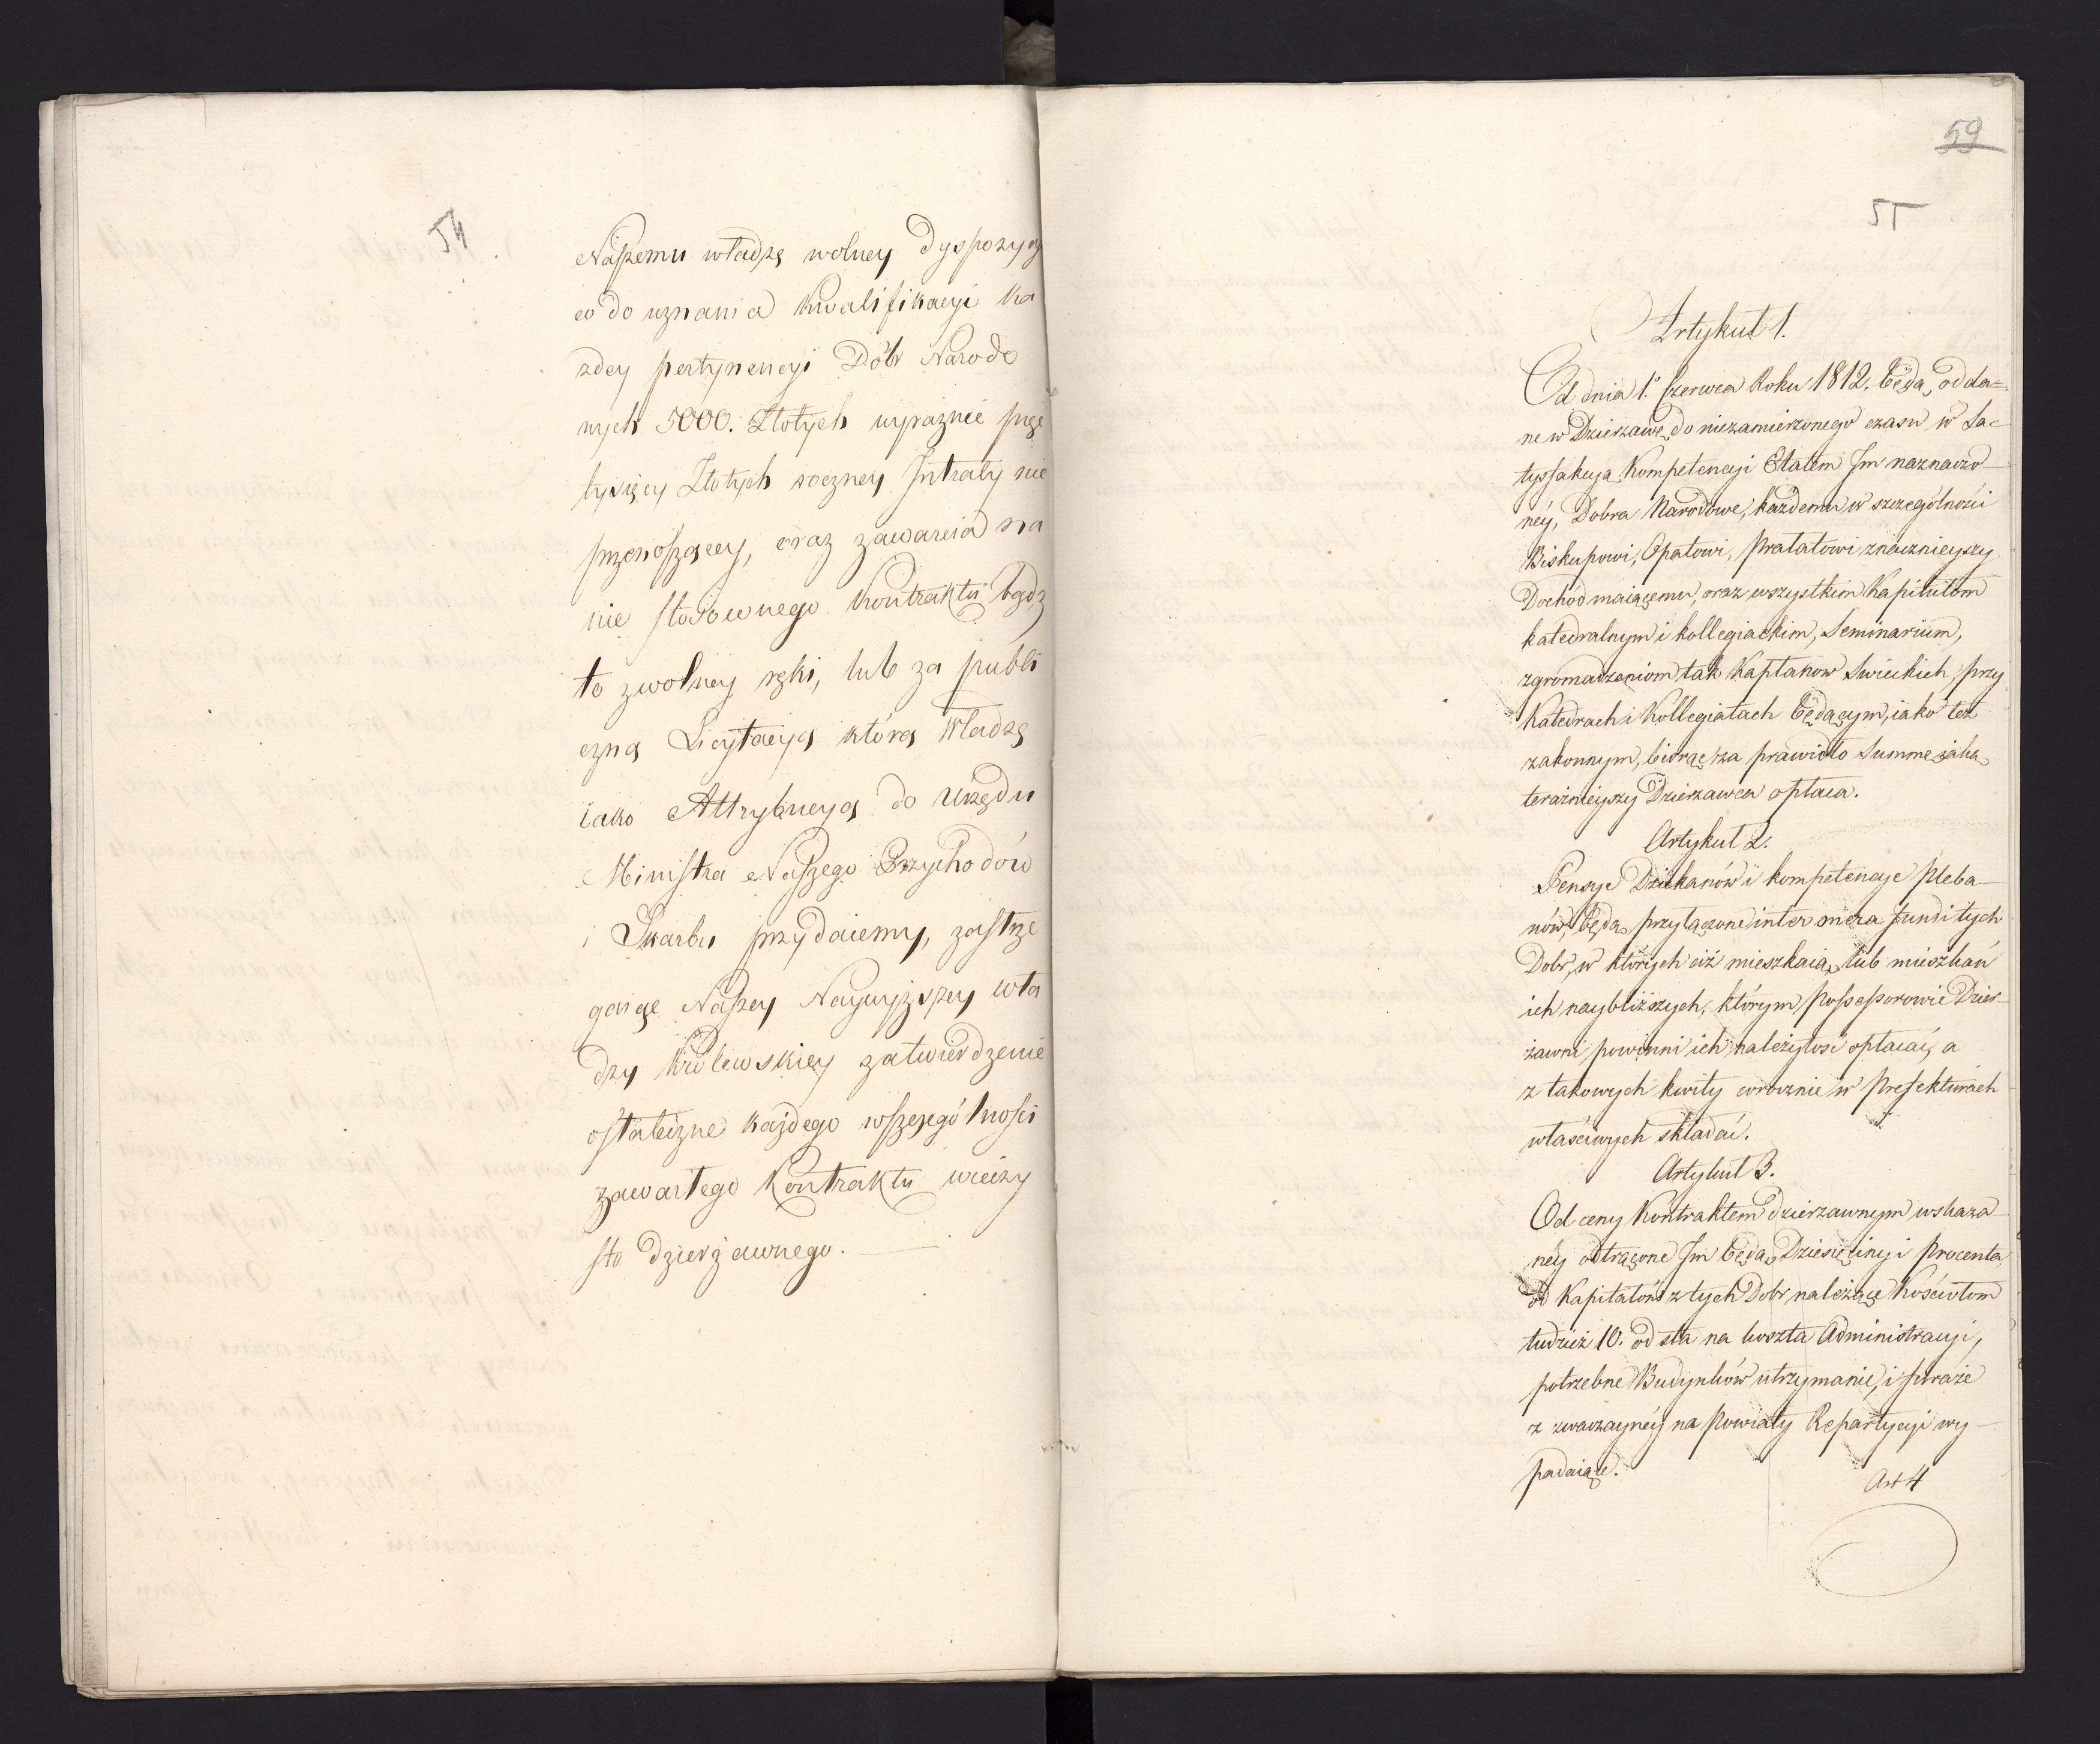 54
Naszemu władzę wolney dyspozycy
co do uznania kwalifikacyi ka
zdey pertynencyi Dóbr Narodo
wych 5000. Złotych wyraznie pięć
tysięcy Złotych roczney Intraty nie
przenoszącey, oraz zawarcia na
nie stosownego Kontraktu bądz
to z wolney ręki, lub za publi
czną Licytacyą którą Władzę
iako Attrybucyą do Urzędu
Ministra Naszego Przychodów
i Skarbu przydaiemy, zastrze
gaiąc Naszey Naywyższey wła
dzy Królewskiey zatwierdzenie
ostateczne każdego wszczególnosci
zawartego Kontraktu wieczy
sto dzierżawnego.
59
55
Artykuł 1.
Od dnia 1.° Czerwca Roku 1812. będą odda=
ne w Dzierzawę do niezamierzonego czasu w Sa=
tysfakcyą Kompetencyi Etatem Im naznaczo
néy, Dobra Narodowe, każdemu w szczególności
Biskupowi, Opatowi, Prałatowi znacznieyszy
Dochód maiącemu, oraz wszystkim Kapitułom
katedralnym i kollegiackim, Seminarium,
zgromadzeniom tak Kapłanów Swieckich przy
Katedrach i Kollegiatach będącym, iako też
zakonnym, biorąc za prawidło Summę jaką
teraźnieyszy Dzierzawca opłaca.
Artykuł 2.
Pensye Dziekanów i kompetencye Pleba—
nów, będą przyłączone inter onera fundi tych
Dobr, w których ciż mieszkaią, lub mieszkań
ich naybliższych, którym Possessorowie Dzier—
żawni powinni ich należytość opłacać, a
z takowych kwity corocznie w Prefekturach
właściwych składać.
Artykuł 3.
Od ceny Kontraktem dzierzawnym wskaza
néy odtrącone Im będą Dziesięciny i Procenta
od Kapitałów z tych Dobr należące Kościołom
tudzież 10. od sta na koszta Administracyi,
potrzebne Budynków utrzymanie, i straże
z zwaczaynéy na Powiaty Repartycyi wy—
padaiące.
Art 4